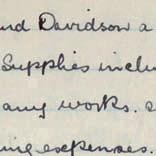 and Davidson a
Supplies inclu
any works.
ing expenses.